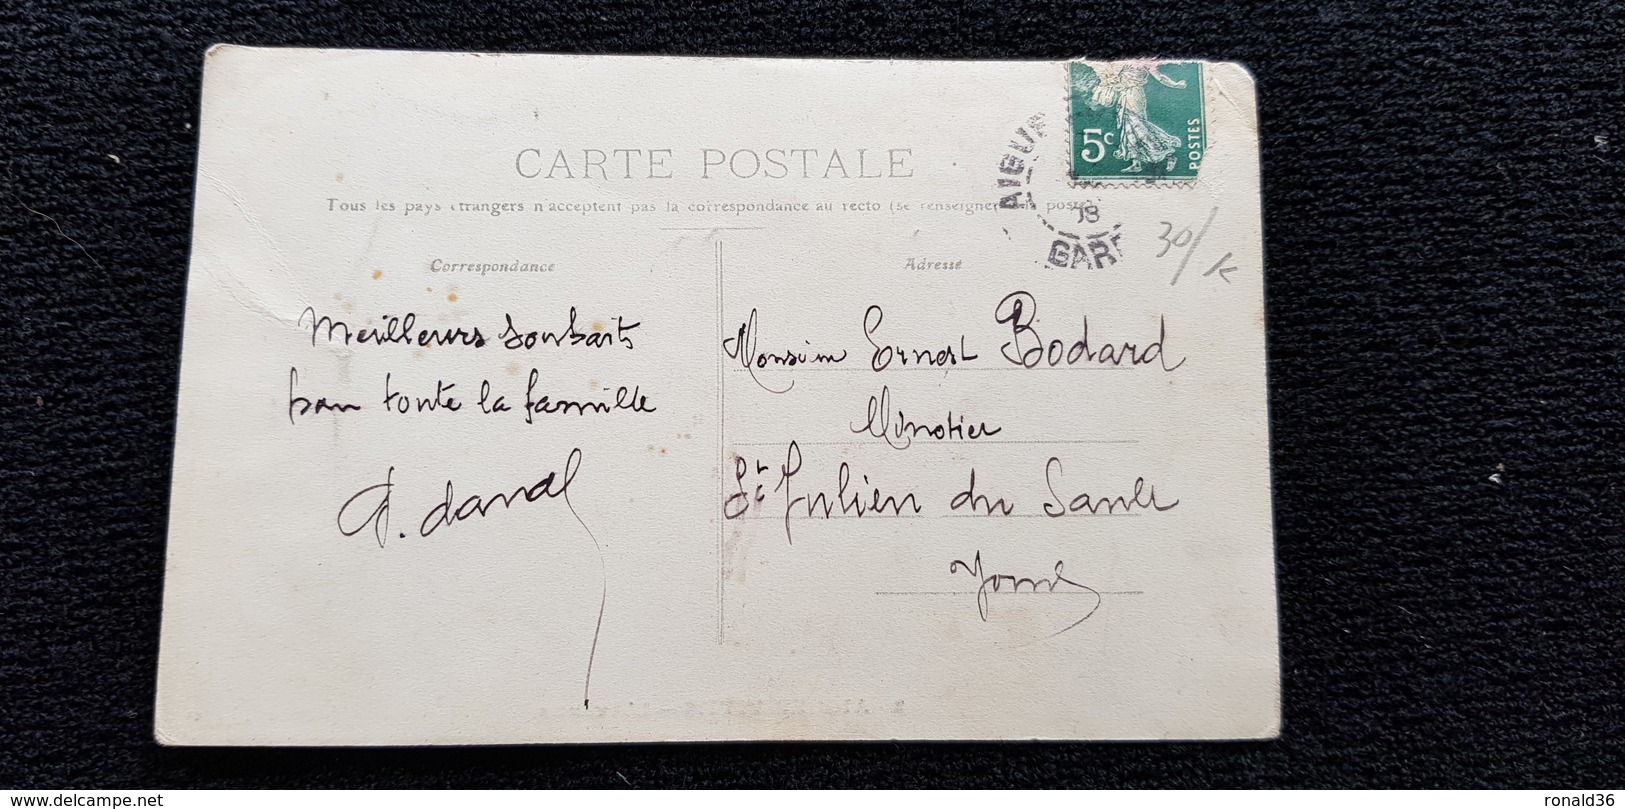 CARTE POSTALE
5c
POSTES
AIGUR
08
GARE
Tous les pays étrangers n'acceptent pas la correspondance au recto (se renseigner à la poste)
30/
Correspondance
Adresse
Meilleurs souhaits
pour toute la famille
Monsieur Ernest Bodard
Minotier
St Julien du Sault
Yonne
delcampe.net
ronald36